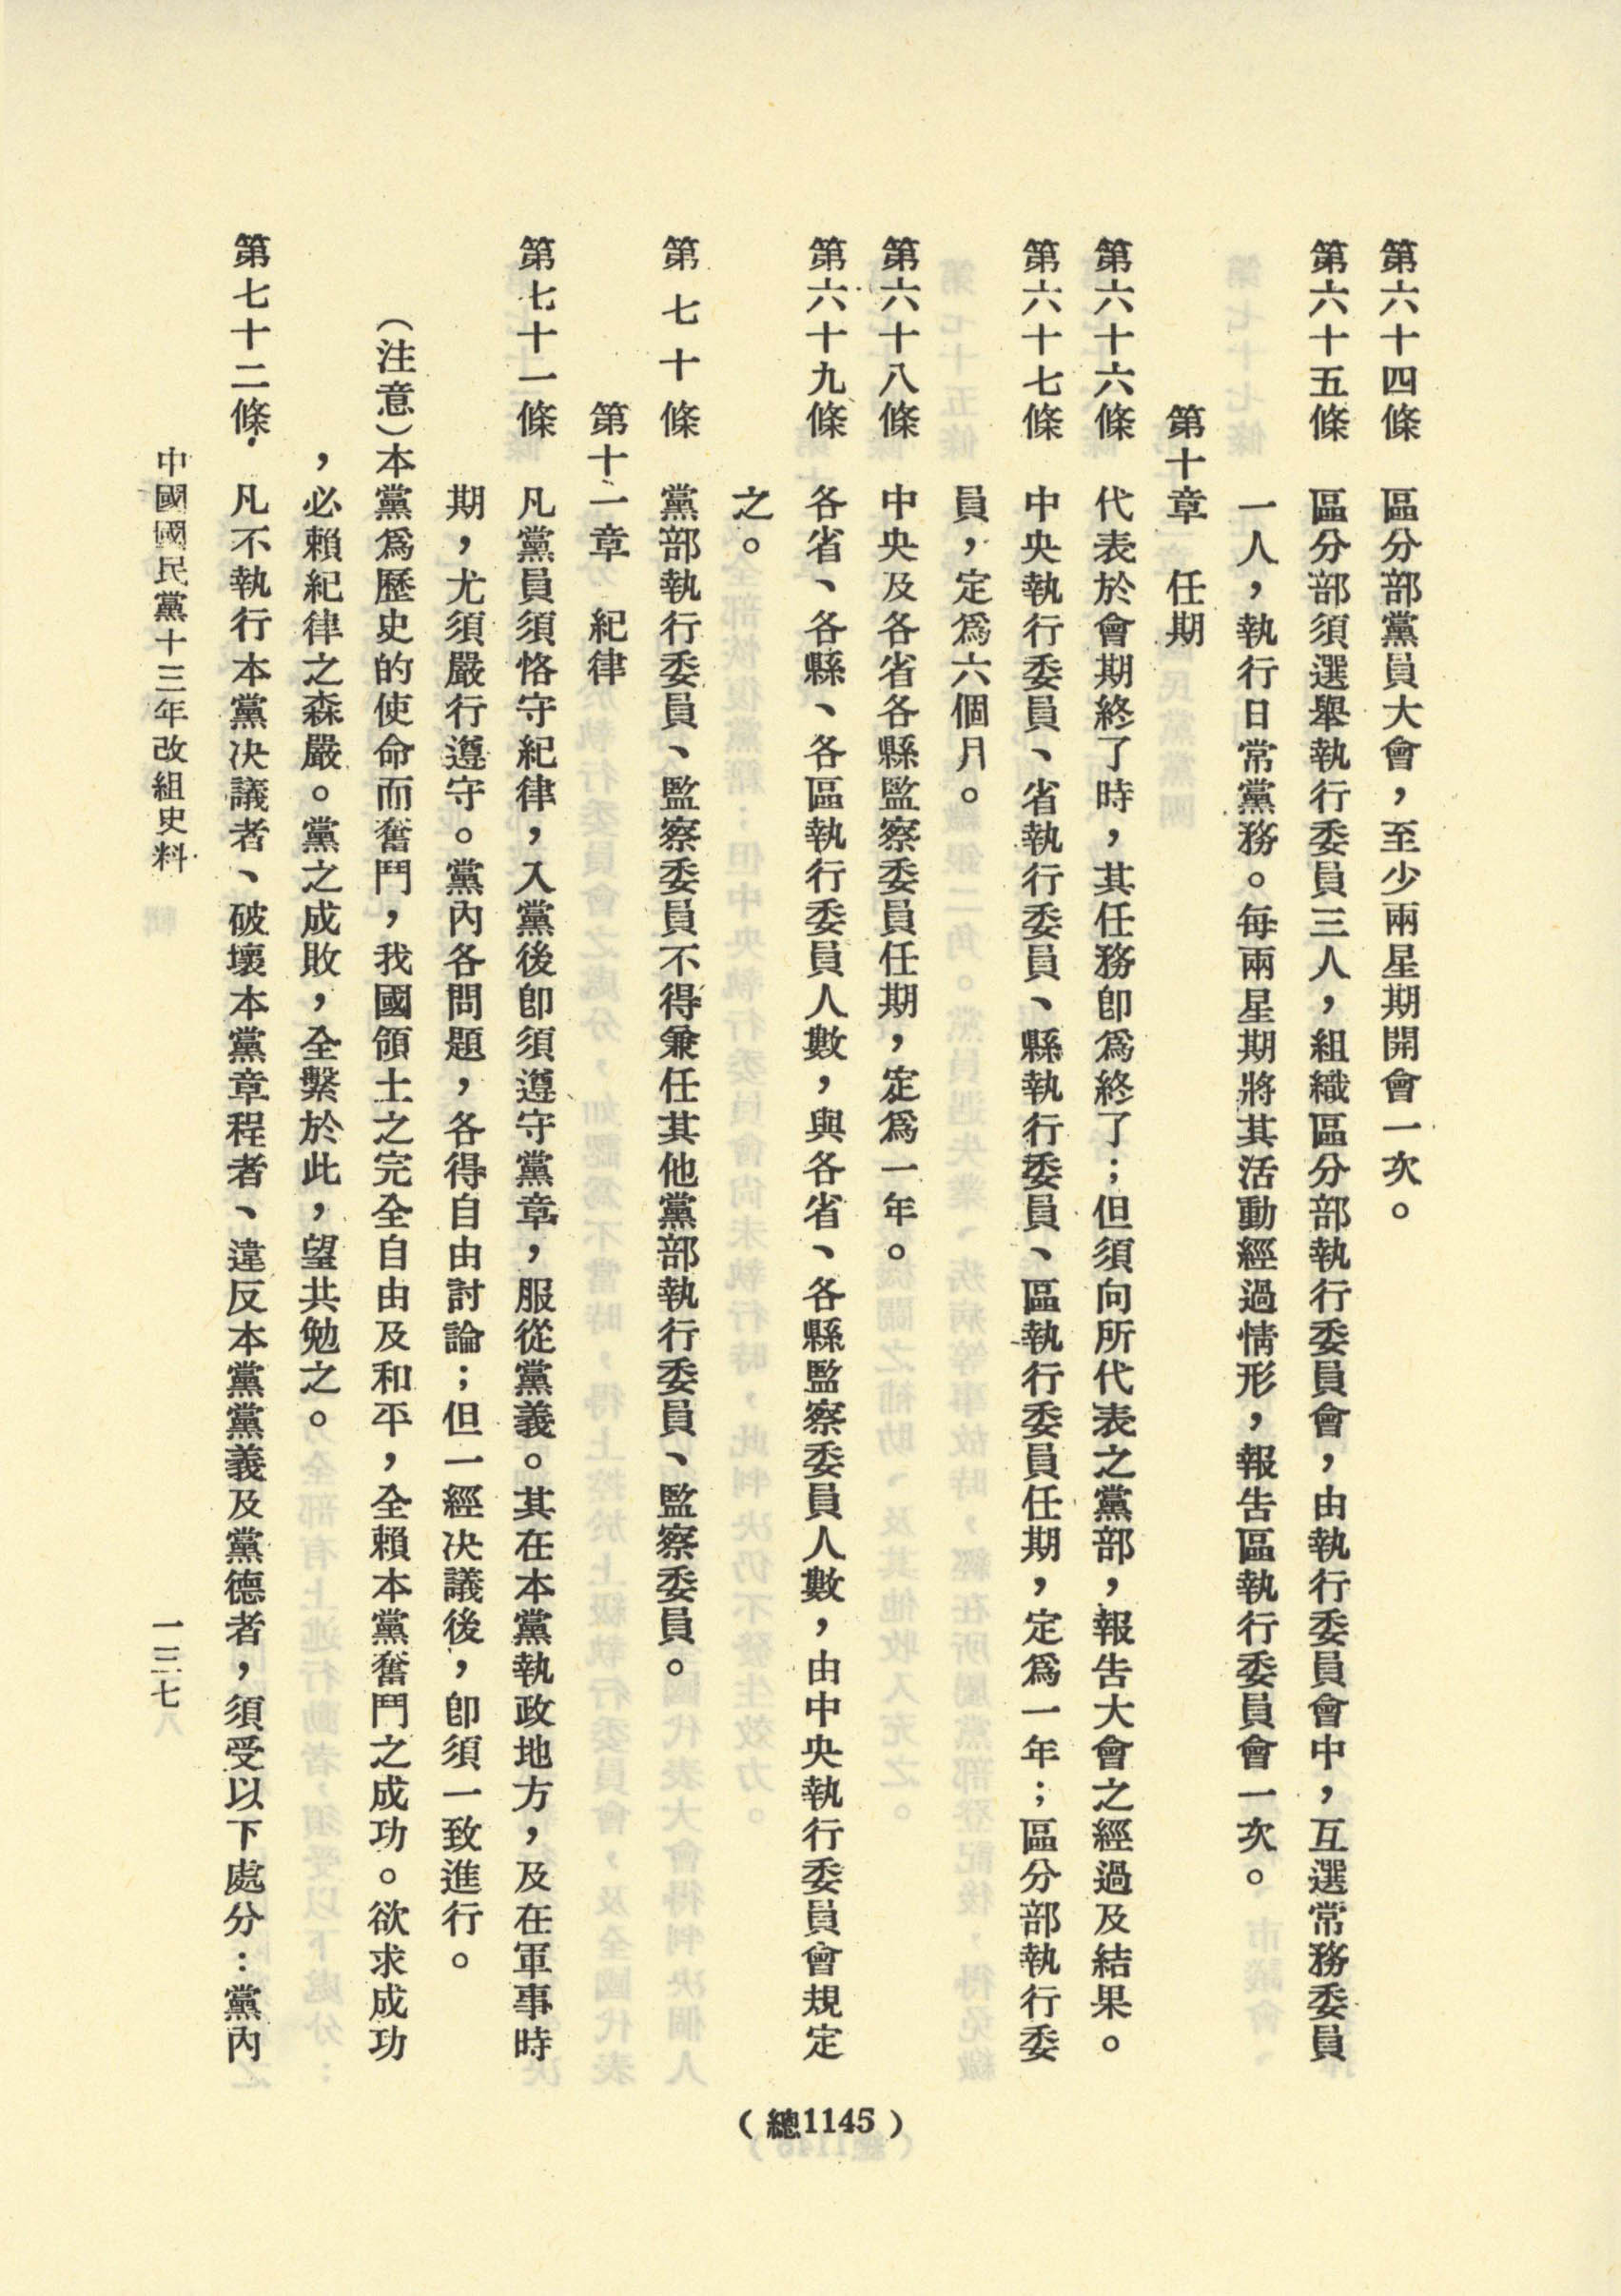 第六十四條　區分部黨員大會，至少兩星期開會一次。
第六十五條　區分部須選舉執行委員三人，組織區分部執行委員會，由執行委員會中，互選常務委員
一人，執行日常黨務。每兩星期將其活動經過情形，報告區執行委員會一次。
第十章　任期
第六十六條　代表於會期終了時，其任務卽爲終了；但須向所代表之黨部，報告大會之經過及結果。
第六十七條　中央執行委員、省執行委員、縣執行委員、區執行委員任期，定爲一年；區分部執行委
員，定爲六個月。
第六十八條　中央及各省各縣監察委員任期，定爲一年。
第六十九條　各省、各縣、各區執行委員人數，與各省、各縣監察委員人數，由中央執行委員會規定
之。
第七十條　黨部執行委員、監察委員不得兼任其他黨部執行委員、監察委員。
第十一章　紀律
第七十一條　凡黨員須恪守紀律，入黨後卽須遵守黨章，服從黨義。其在本黨執政地方，及在軍事時
期，尤須嚴行遵守。黨內各問題，各得自由討論；但一經決議後，卽須一致進行。
（注意）本黨爲歷史的使命而奮鬥，我國領土之完全自由及和平，全賴本黨奮鬥之成功。欲求成功
，必賴紀律之森嚴。黨之成敗，全繫於此，望共勉之。
第七十二條　凡不執行本黨決議者、破壞本黨章程者、違反本黨黨義及黨德者，須受以下處分：黨內
中國國民黨十三年改組史料
一三七
（總1145）